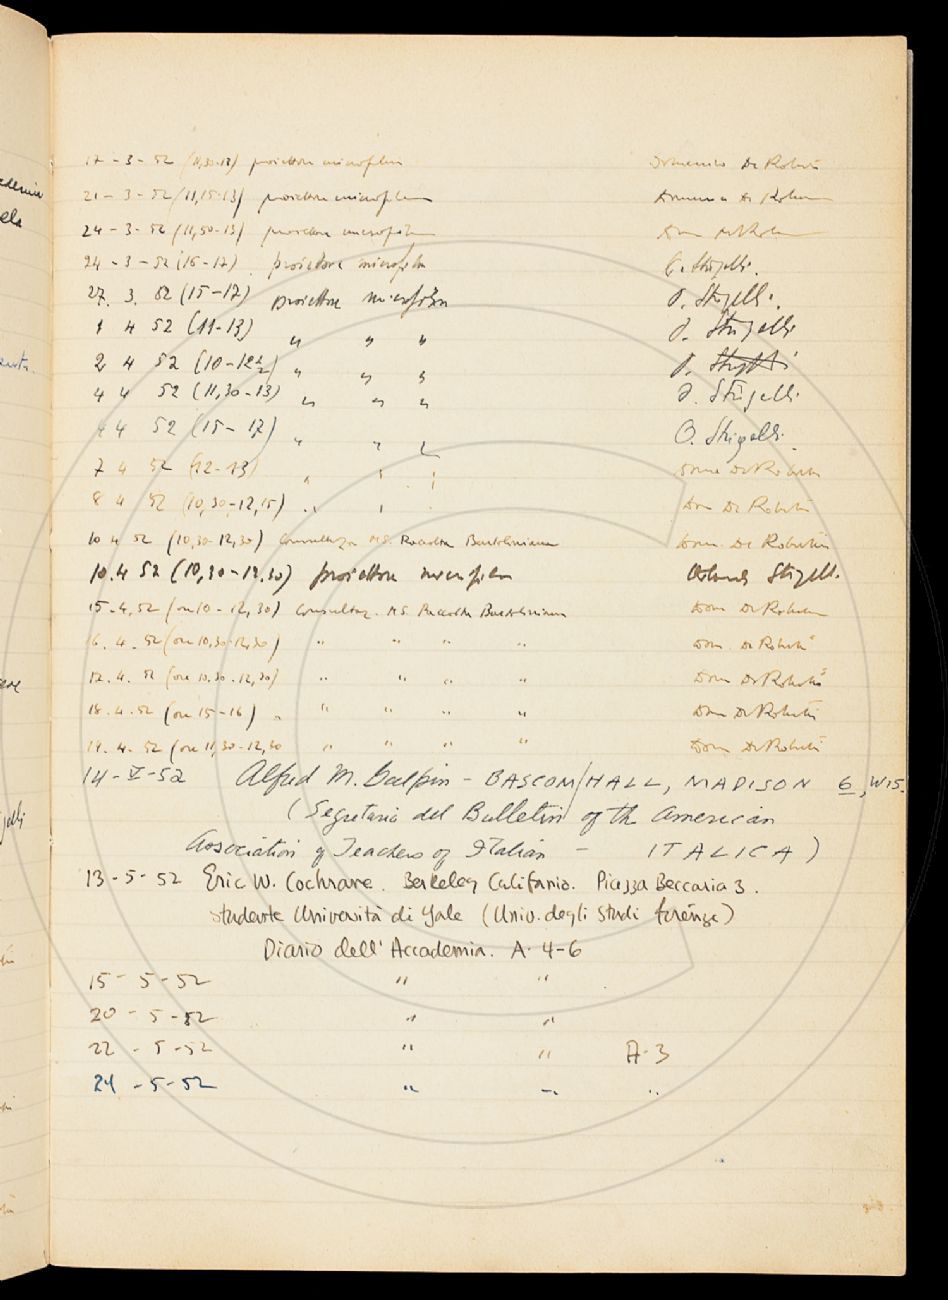 17 - 3 - 52 (11,30-13) proiettore microfilm Domenico De Robertis
21 - 3 - 52 (11,15-13) proiettore microfilm Domenico De Robertis
24 - 3 - 52 (11,50-13) proiettore microfilm Dom De Robertis
24 - 3 - 52 (16-17) proiettore microfilm
27. 3. 52 (15-17) proiettore microfilm
1 4 52 (11-13) " " "
2 4 52 (10-12½) " " "
4 4 52 (11,30-13) " " "
4 4 52 (15-17) " "
7 4 52 (12-13) " " " De Robertis
8 4 52 (10,30-12,15) " " Dom De Robertis
10 4 52 (10,30-12,30) Consultaz. MS. Raccolta Bartoliniana Dom. De Robertis
10.4 52 (10,30-12,30) proiettore microfilm
15-4,52 (ore 10-12,30) Consultaz. MS. Raccolta Bartoliniana Dom De Robertis
16. 4. 52 (ore 10,30-12,30) " " " " Dom. De Robertis
17. 4. 52 (ore 10,30-12,30) " " " " Dom De Robertis
18. 4. 52 (ore 15-16) " " " " " Dom De Robertis
19. 4. 52 (ore 11,30-12,30 " " " " Dom De Robertis
14-V-52 Alfred M. Galpin - BASCOM HALL, MADISON 6, WIS.
(Segretario del Bulletin of the American
Association of Teachers of Italian - ITALICA)
13-5-52 Eric W. Cochrane. Berkeley California. Piazza Beccaria 3.
studente Università di Yale (Univ. degli Studi Firenze)
Diario dell' Accademia. A. 4-6
15-5-52 " "
20-5-52 " "
22-5-52 " " A.3
24-5-52 " " "